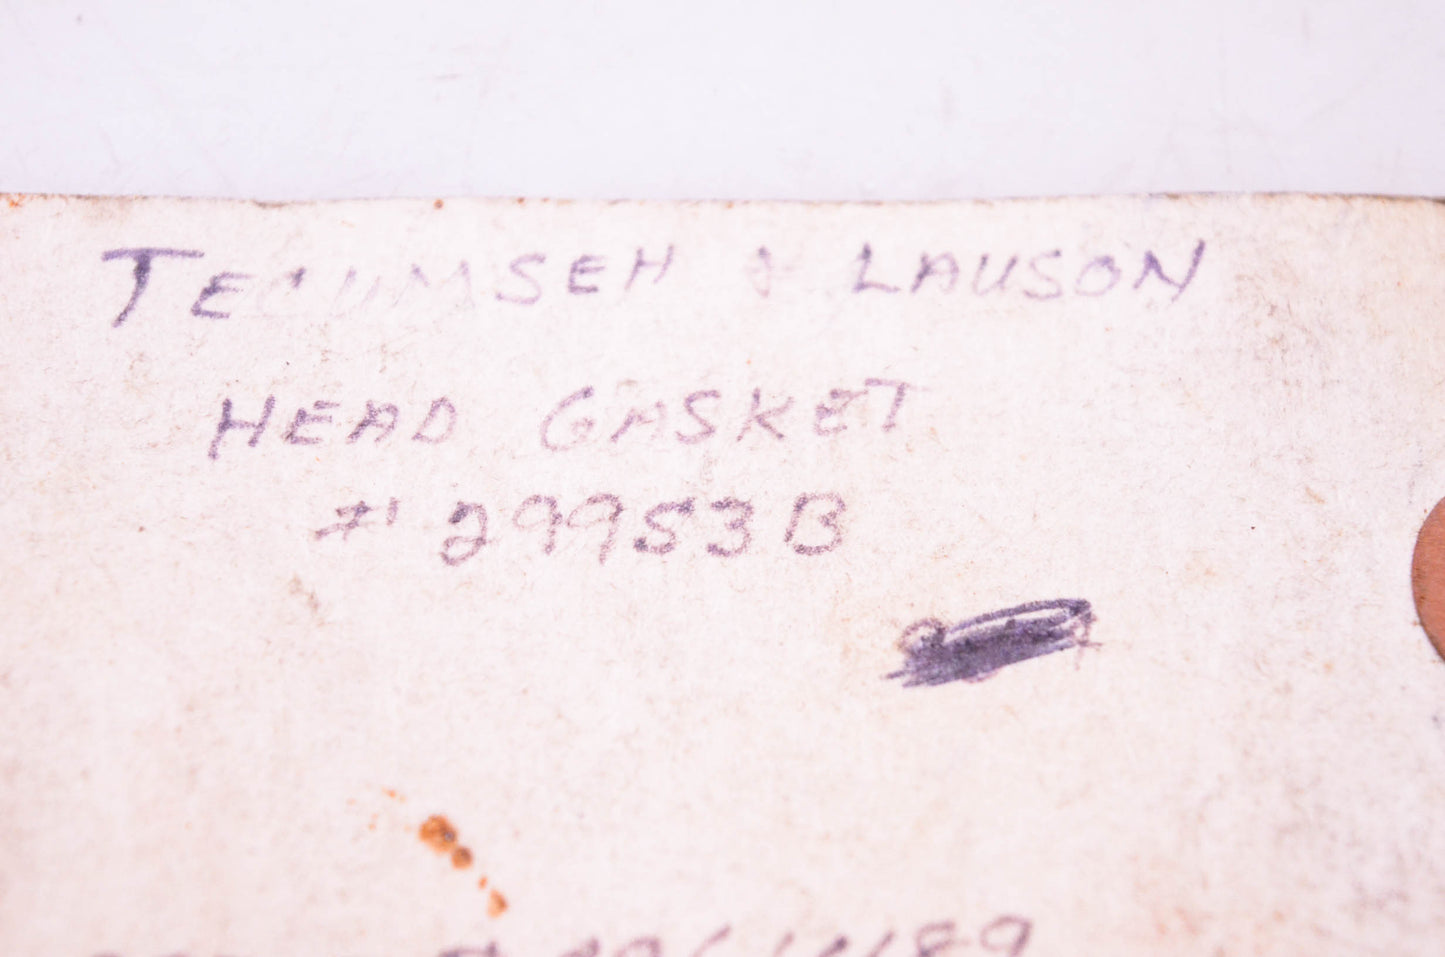 TECUMSEH & LAUSON
HEAD GASKET
# 29953B